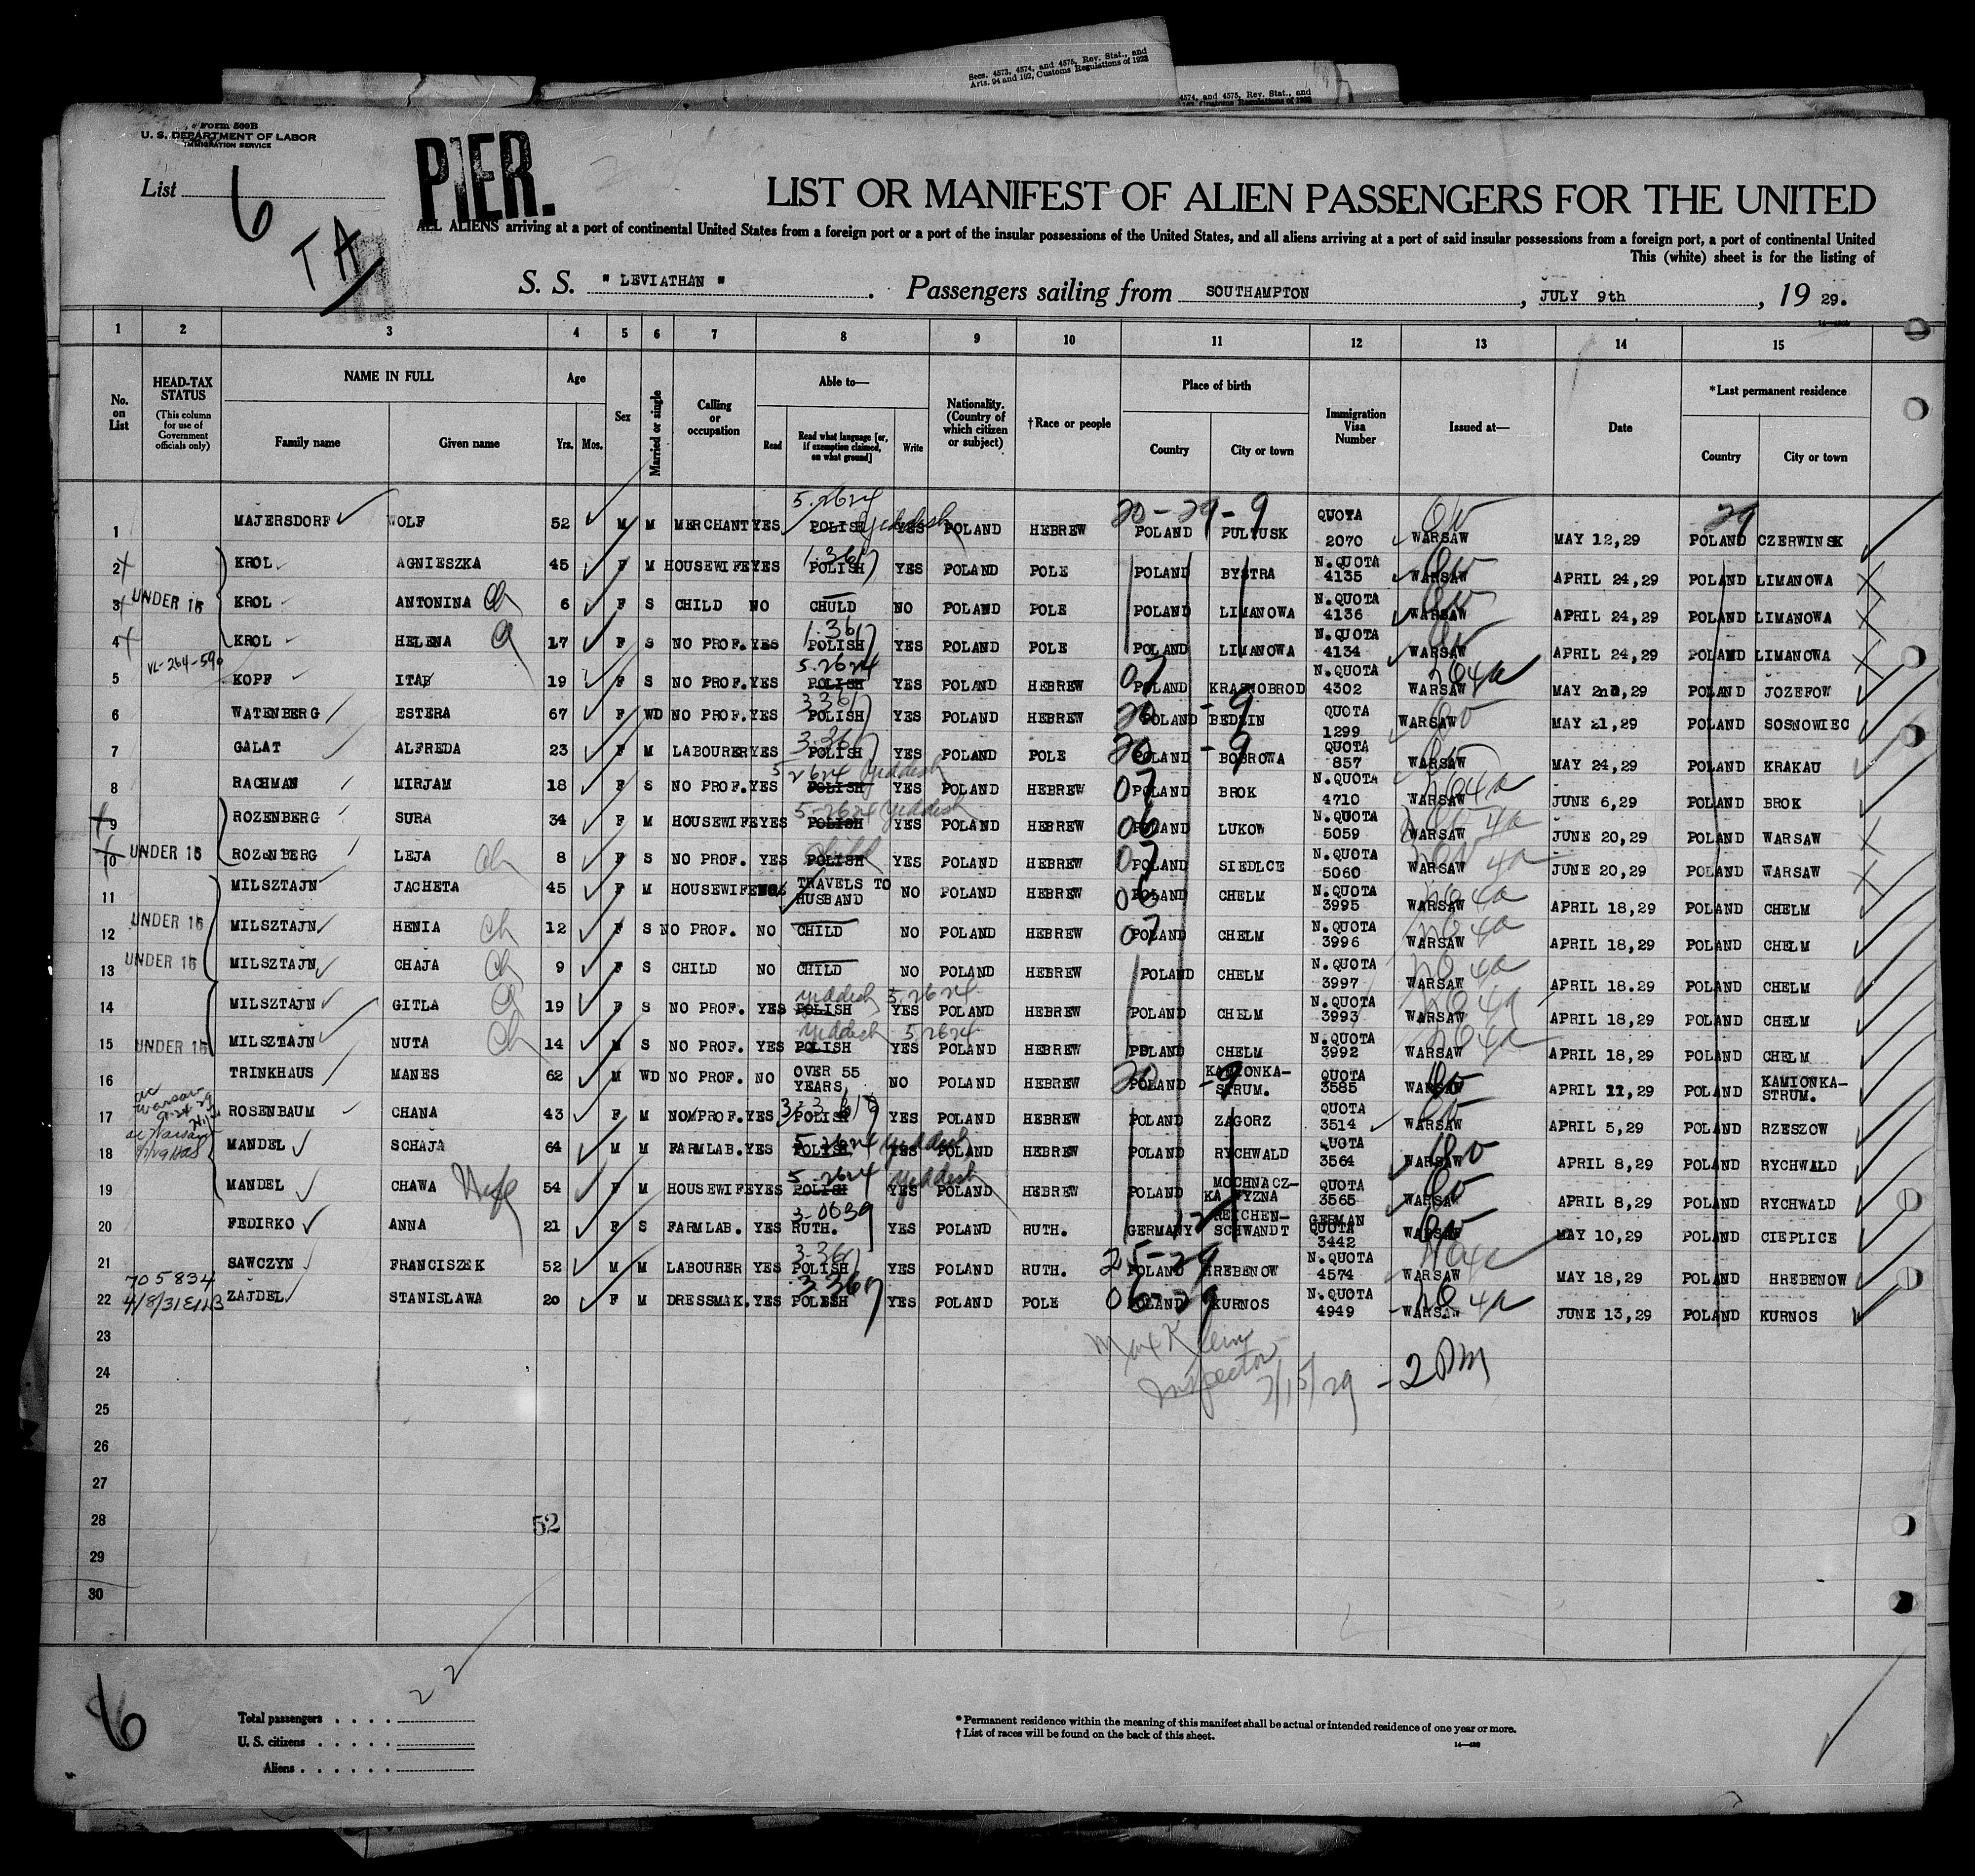 Secs. 4573, 4574, and 4575, Rev. Stat., and
Arts. 94 and 162, Customs Regulations of 1923
4574, and 4575, Rev. Stat., and
Form 500B
U. S. DEPARTMENT OF LABOR
IMMIGRATION SERVICE
List 6
PIER.
TA
LIST OR MANIFEST OF ALIEN PASSENGERS FOR THE UNITED
ALL ALIENS arriving at a port of continental United States from a foreign port or a port of the insular possessions of the United States, and all aliens arriving at a port of said insular possessions from a foreign port, a port of continental United
This (white) sheet is for the listing of
S. S. " LEVIATHAN " . Passengers sailing from SOUTHAMPTON , JULY 9th , 19 29.
1 2 3 4 5 6 7 8 9 10 11 12 13 14 15
No. on List HEAD-TAX STATUS (This column for use of Government officials only) NAME IN FULL Family name Given name Age Yrs. Mos. Sex Married or single Calling or occupation Able to— Read Read what language [or, if exemption claimed, on what ground] Write Nationality. (Country of which citizen or subject) †Race or people Place of birth Country City or town Immigration Visa Number Issued at— Date *Last permanent residence Country City or town
1 MAJERSDORF WOLF 52 M M MERCHANT YES 5.2624 POLISH Yeddish YES POLAND HEBREW 20-29-9 POLAND PULTUSK QUOTA 2070 WARSAW MAY 12,29 29 POLAND CZERWINSK
2 KROL AGNIESZKA 45 F M HOUSEWIFE YES 1.367 POLISH YES POLAND POLE POLAND BYSTRA N.QUOTA 4135 WARSAW APRIL 24,29 POLAND LIMANOWA
3 UNDER 16 KROL ANTONINA Ch 6 F S CHILD NO CHULD NO POLAND POLE POLAND LIMANOWA N.QUOTA 4136 WARSAW APRIL 24,29 POLAND LIMANOWA
4 KROL HELENA 17 F S NO PROF. YES 1.367 POLISH YES POLAND POLE POLAND LIMANOWA N.QUOTA 4134 WARSAW APRIL 24,29 POLAND LIMANOWA
5 VL-264-590 KOPF ITAE 19 F S NO PROF. YES 5.2624 POLISH YES POLAND HEBREW 07 POLAND KRASNOBROD N.QUOTA 4302 WARSAW MAY 2nd,29 POLAND JOZEFOW
6 WATENBERG ESTERA 67 F WD NO PROF. YES 3367 POLISH YES POLAND HEBREW 20-9 POLAND BEDZIN QUOTA 1299 WARSAW MAY 21,29 POLAND SOSNOWIEC
7 GALAT ALFREDA 23 F M LABOURER YES 3.367 POLISH YES POLAND POLE 20-9 POLAND BOBROWA QUOTA 857 WARSAW MAY 24,29 POLAND KRAKAU
8 RACHMAN MIRJAM 18 F S NO PROF. YES 5 2624 Yeddish POLISH YES POLAND HEBREW 07 POLAND BROK N.QUOTA 4710 WARSAW JUNE 6,29 POLAND BROK
9 ROZENBERG SURA 34 F M HOUSEWIFE YES 5-2624 Yeddish POLISH YES POLAND HEBREW 06 POLAND LUKOW N.QUOTA 5059 WARSAW JUNE 20,29 POLAND WARSAW
10 UNDER 16 ROZENBERG LEJA Ch 8 F S NO PROF. YES POLISH child YES POLAND HEBREW 07 POLAND SIEDLCE N.QUOTA 5060 WARSAW JUNE 20,29 POLAND WARSAW
11 MILSZTAJN JACHETA 45 F M HOUSEWIFE TRAVELS TO HUSBAND NO POLAND HEBREW 06 POLAND CHELM N.QUOTA 3995 WARSAW APRIL 18,29 POLAND CHELM
12 UNDER 16 MILSZTAJN HENIA Ch 12 F S NO PROF. NO CHILD NO POLAND HEBREW 07 POLAND CHELM N.QUOTA 3996 WARSAW APRIL 18,29 POLAND CHELM
13 UNDER 16 MILSZTAJN CHAJA Ch 9 F S CHILD NO CHILD NO POLAND HEBREW POLAND CHELM N.QUOTA 3997 WARSAW APRIL 18.29 POLAND CHELM
14 MILSZTAJN GITLA 19 F S NO PROF. YES Yeddish 5.2624 POLISH YES POLAND HEBREW POLAND CHELM N.QUOTA 3993 WARSAW APRIL 18,29 POLAND CHELM
15 UNDER 16 MILSZTAJN NUTA Ch 14 M S NO PROF. YES Yeddish 5.2624 POLISH YES POLAND HEBREW POLAND CHELM N.QUOTA 3992 WARSAW APRIL 18,29 POLAND CHELM
16 TRINKHAUS MANES 62 M WD NO PROF. NO OVER 55 YEARS, NO POLAND HEBREW 20-9 POLAND KAMIONKA-STRUM. QUOTA 3585 WARSAW APRIL 11,29 POLAND KAMIONKA-STRUM.
17 ROSENBAUM CHANA 43 F M NO PROF. YES POLISH YES POLAND HEBREW POLAND ZAGORZ QUOTA 3514 WARSAW APRIL 5,29 POLAND RZESZOW
18 MANDEL SCHAJA 64 M M FARMLAB. YES 5.2624 Yeddish POLISH YES POLAND HEBREW POLAND RYCHWALD QUOTA 3564 WARSAW APRIL 8,29 POLAND RYCHWALD
19 MANDEL CHAWA Wife 54 F M HOUSEWIFE YES 5.2624 Yeddish POLISH YES POLAND HEBREW POLAND MOCHNACZ-KA WYZNA QUOTA 3565 WARSAW APRIL 8,29 POLAND RYCHWALD
20 FEDIRKO ANNA 21 F S FARMLAB. YES 3-0639 RUTH. YES POLAND RUTH. GERMANY REICHEN-SCHWANDT GERMAN QUOTA 3442 WARSAW MAY 10,29 POLAND CIEPLICE
21 SAWCZYN FRANCISZEK 52 M M LABOURER YES 3-367 POLISH YES POLAND RUTH. 25-29 POLAND HREBENOW N.QUOTA 4574 WARSAW MAY 18,29 POLAND HREBENOW
705834
22 4/8/31 ZAJDEL STANISLAWA 20 F M DRESSMAK. YES 3.367 POLISH YES POLAND POLE 06-29 POLAND KURNOS N.QUOTA 4949 WARSAW JUNE 13,29 POLAND KURNOS
23
Max Klein
24 Inspector 7/15/29 - 2 PM
25
26
27
28 52
29
30
6
22
Total passengers . . . .
U. S. citizens . . . . .
Aliens . . . . . .
* Permanent residence within the meaning of this manifest shall be actual or intended residence of one year or more.
† List of races will be found on the back of this sheet.